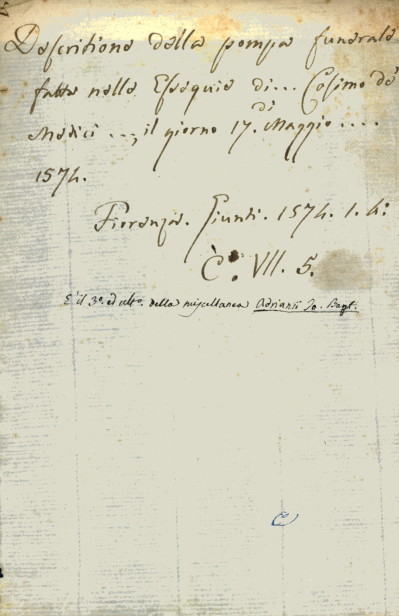 Descritione della pompa funerale
fatta nelle Essequie di... Cosimo de'
Medici ..., il giorno 17. di Maggio ....
1574.
Fiorenza. Giunti. 1574. 1. 4:
C. VII. 5.
È il 3º. ed ulto. della miscellanea Adriani Jo. Bapt.